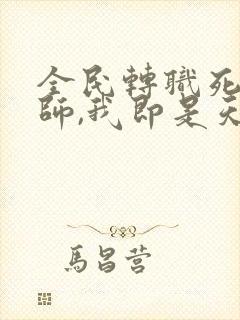 全民轉職死
師,我即是天
馬昌营